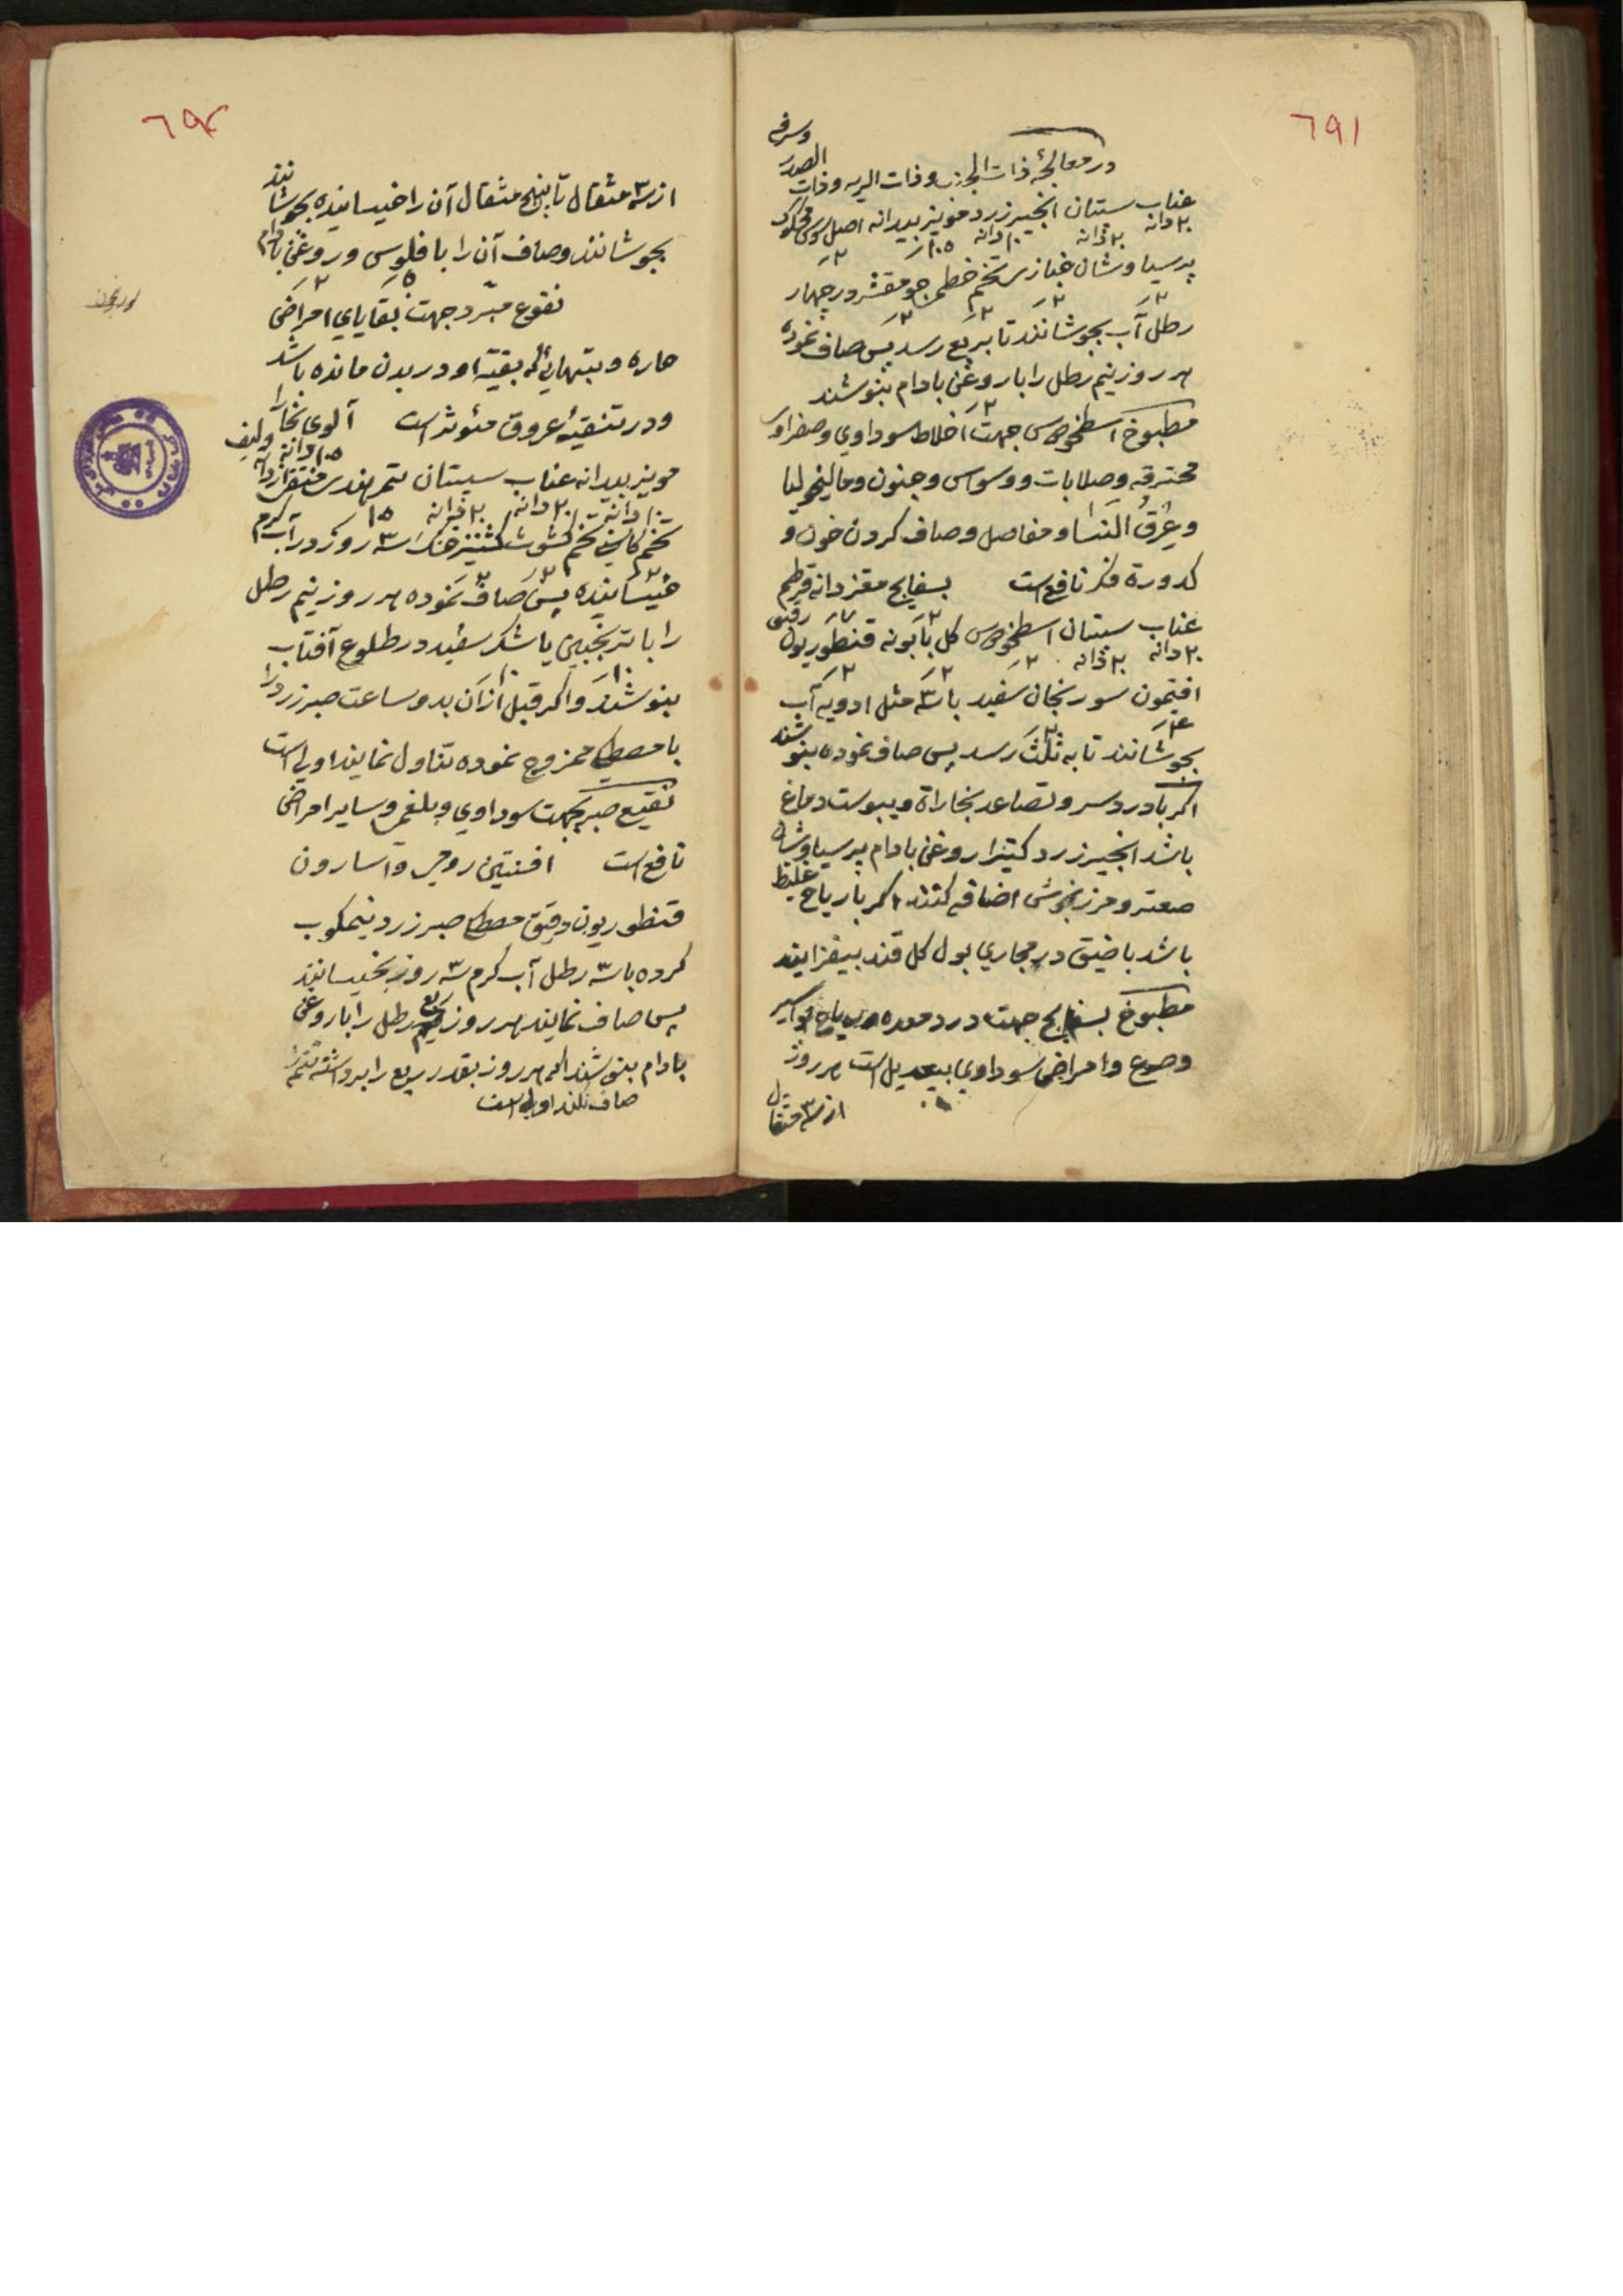 ٦٩١
در معالجهٔ ذات الجنب و ذات الریه و ذات الصدر و سرفه
عناب سبستان انجیر زرد مویز بیدانه اصل سوس محکوک
٢٠ دانه ٢٠ دانه ١٠ دانه
پرسیاوشان خبازی تخم خطمی جو مقشر در چهار
رطل آب بجوشانند تا بربع رسد پس صاف نموده
هر روز نیم رطل را با روغن بادام بنوشند
مطبوخ اسطخودوس جهت اخلاط سوداوي و صفراوی
محترقه و صلابات و وسواس و جنون و مالیخولیا
و عرق النسا و مفاصل و صاف کردن خون و
کدورة فکر نافع است بسفایج مغز دانه قرطم
عناب سبستان اسطخودوس کل بابونه قنطوریون رقیق
٢٠ دانه ٢٠ دانه
افتیمون سورنجان سفید با سه مثل ادویه آب
بجوشانند تا به ثلث رسد پس صاف نموده بنوشند
اکر با درد سر و تصاعد بخاراة و یبوست دماغ
باشد انجیر زرد کتیرا روغن بادام پرسیاوشان
صعتر و مرزنجوش اضافه کنند اکر با ریاح غلیظ
باشد با ضیق در مجاري بول کل قند بیفزایند
مطبوخ بسفایج جهت درد معده و ریاح بواسیر
و صرع و امراض سوداوي بیعدیل است هر روز
از سه مثقال
٦٩٢
از سه مثقال تا پنج مثقال آن را خیسانیده بجوشانند
بجوشانند و صاف آن را با فلوس و روغن بادام
نقوع مبرد جهت بقایاي امراض
حاره و تبهائی که بقیه او در بدن مانده باشد
و در تنقیه عروق مؤثر است آلوی بخارا
مویز بیدانه عناب سبستان تمر هندی
١٠ دانه ٢٠ دانه ٢٠ دانه ١٥
تخم کاسنی تخم کشوث کشنیز خشک سه روز در آب کرم
خیسانیده پس صاف نموده هر روز نیم رطل
را با ترنجبین یا شکر سفید در طلوع آفتاب
بنوشند و اکر قبل از آن بدو ساعت صبر زرد را
با مصطکی ممزوج نموده تناول نمایند اولی است
نقیع صبر بجهت سوداوي و بلغمی و سایر امراض
نافع است افسنتین رومی و آسارون
قنطوریون دقیق مصطکی صبر زرد نیمکوب
کرده با سه رطل آب کرم سه روز بخیسانند
پس صاف نمایند هر روز ربع رطل را با روغن
بادام بنوشند اکر هر روز بقدر ربع را برداشته تتمه را
صاف نکنند اولی است